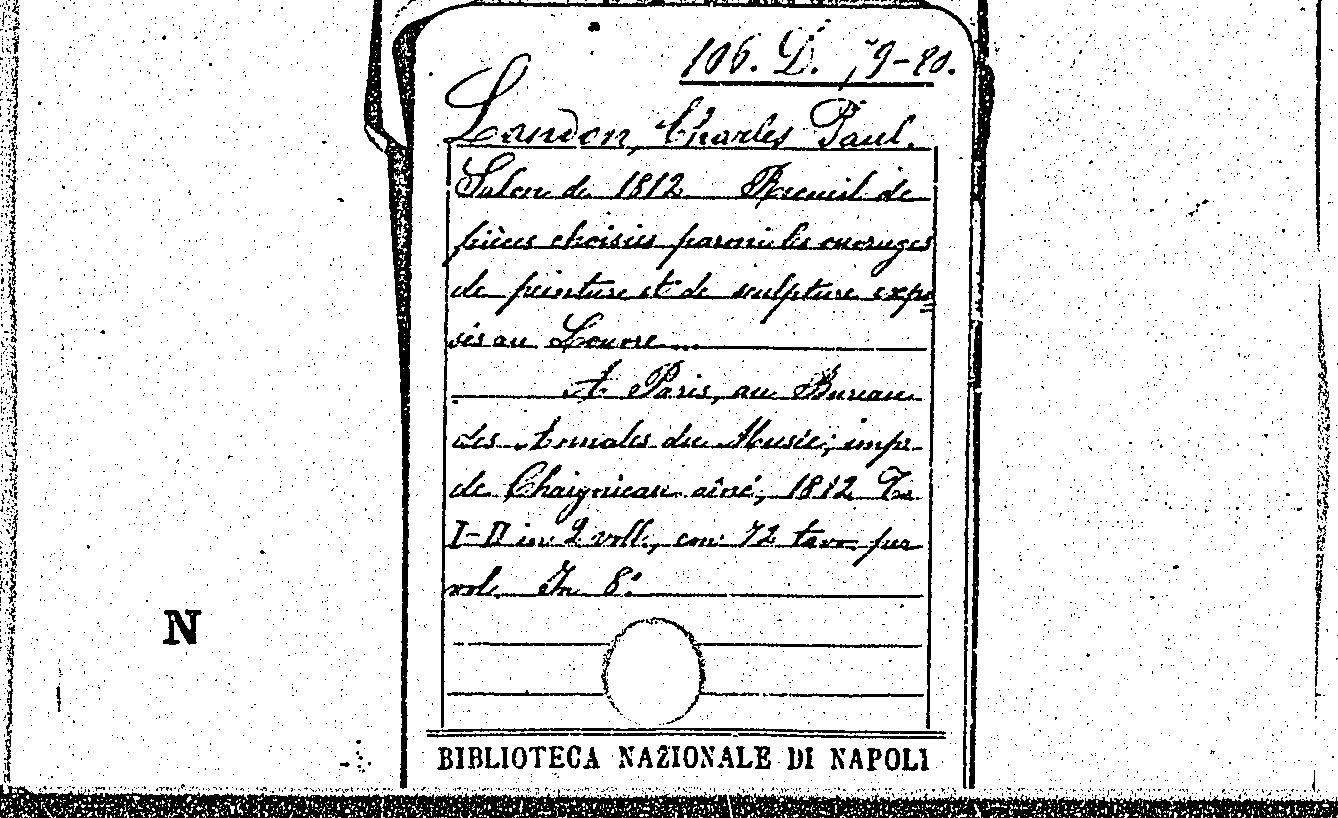 106. D. 79-80.
Landon, Charles Paul.
Salon de 1812 Recueil de
pièces choisies parmi les ouvrages
de peinture et de sculpture expo=
sés au Louvre...
A Paris, au Bureau
des Annales du Musée; impr.
de Chaigneau aîné, 1812 To.
I-II in 2 voll., con 72 tavv. per
vol. In 8°
N
BIBLIOTECA NAZIONALE DI NAPOLI